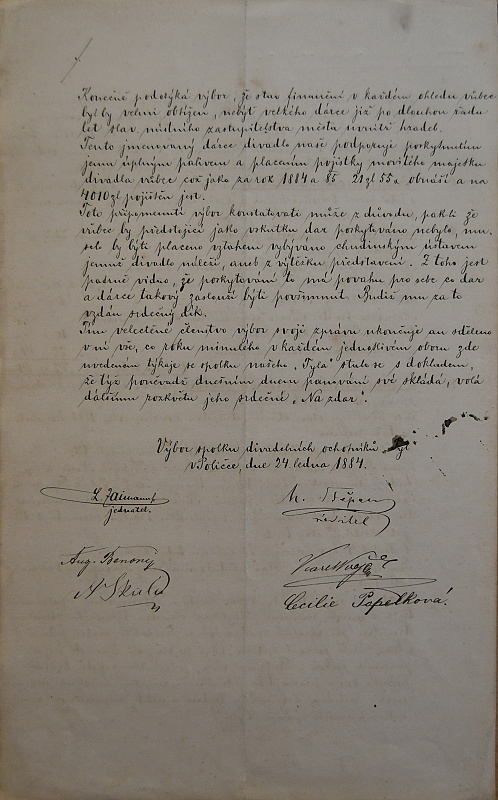 Konečně podotýká výbor, že stav finanční v každém ohledu vůbec
byl by velmi obtížen, nebýt velkého dárce již po dlouhou řadu
let slav. místního zastupitelstva města uvnitř hradeb.
Tento jmenovaný dárce divadlo naše podporuje poskytnutím
jemu úplným palivem a placením pojistky movitého majetku
divadla vůbec což jako za rok 1884 a 85 21 zl 55 a obnáší a na
4010 zl pojištěn jest.
Toto připomenutí výbor konstatovati může z důvodu, pakli že
vůbec by předstojící jako vskutku dar poskytováno nebylo, mu-
selo by býti placeno vztahem vybýváno chudinským ústavem
jemuž divadlo náleží, aneb z výtěžku představení. Z toho jest
patrně vidno, že poskytování to má povahu pro sebe co dar
a dárce takový zaslouží býti povšimnut. Budiž mu za to
vzdán srdečný dík.
Tím velectěné členstvo výbor svoji zprávu ukončuje an sděleno
v ní vše, co roku minulého v každém jednotlivém oboru zde
uvedeném týkaje se spolku našeho „Tyla" stalo se s dokladem,
že týž poněvadž dnešním dnem panování své skládá, volá
dalšímu rozkvětu jeho srdečné „Na zdar".
Výbor spolku divadelních ochotníků Tyl
v Poličce, dne 24. ledna 1884.
jednatel.
ředitel
Aug. Benoný
A Skula
Cecilie Popelková.